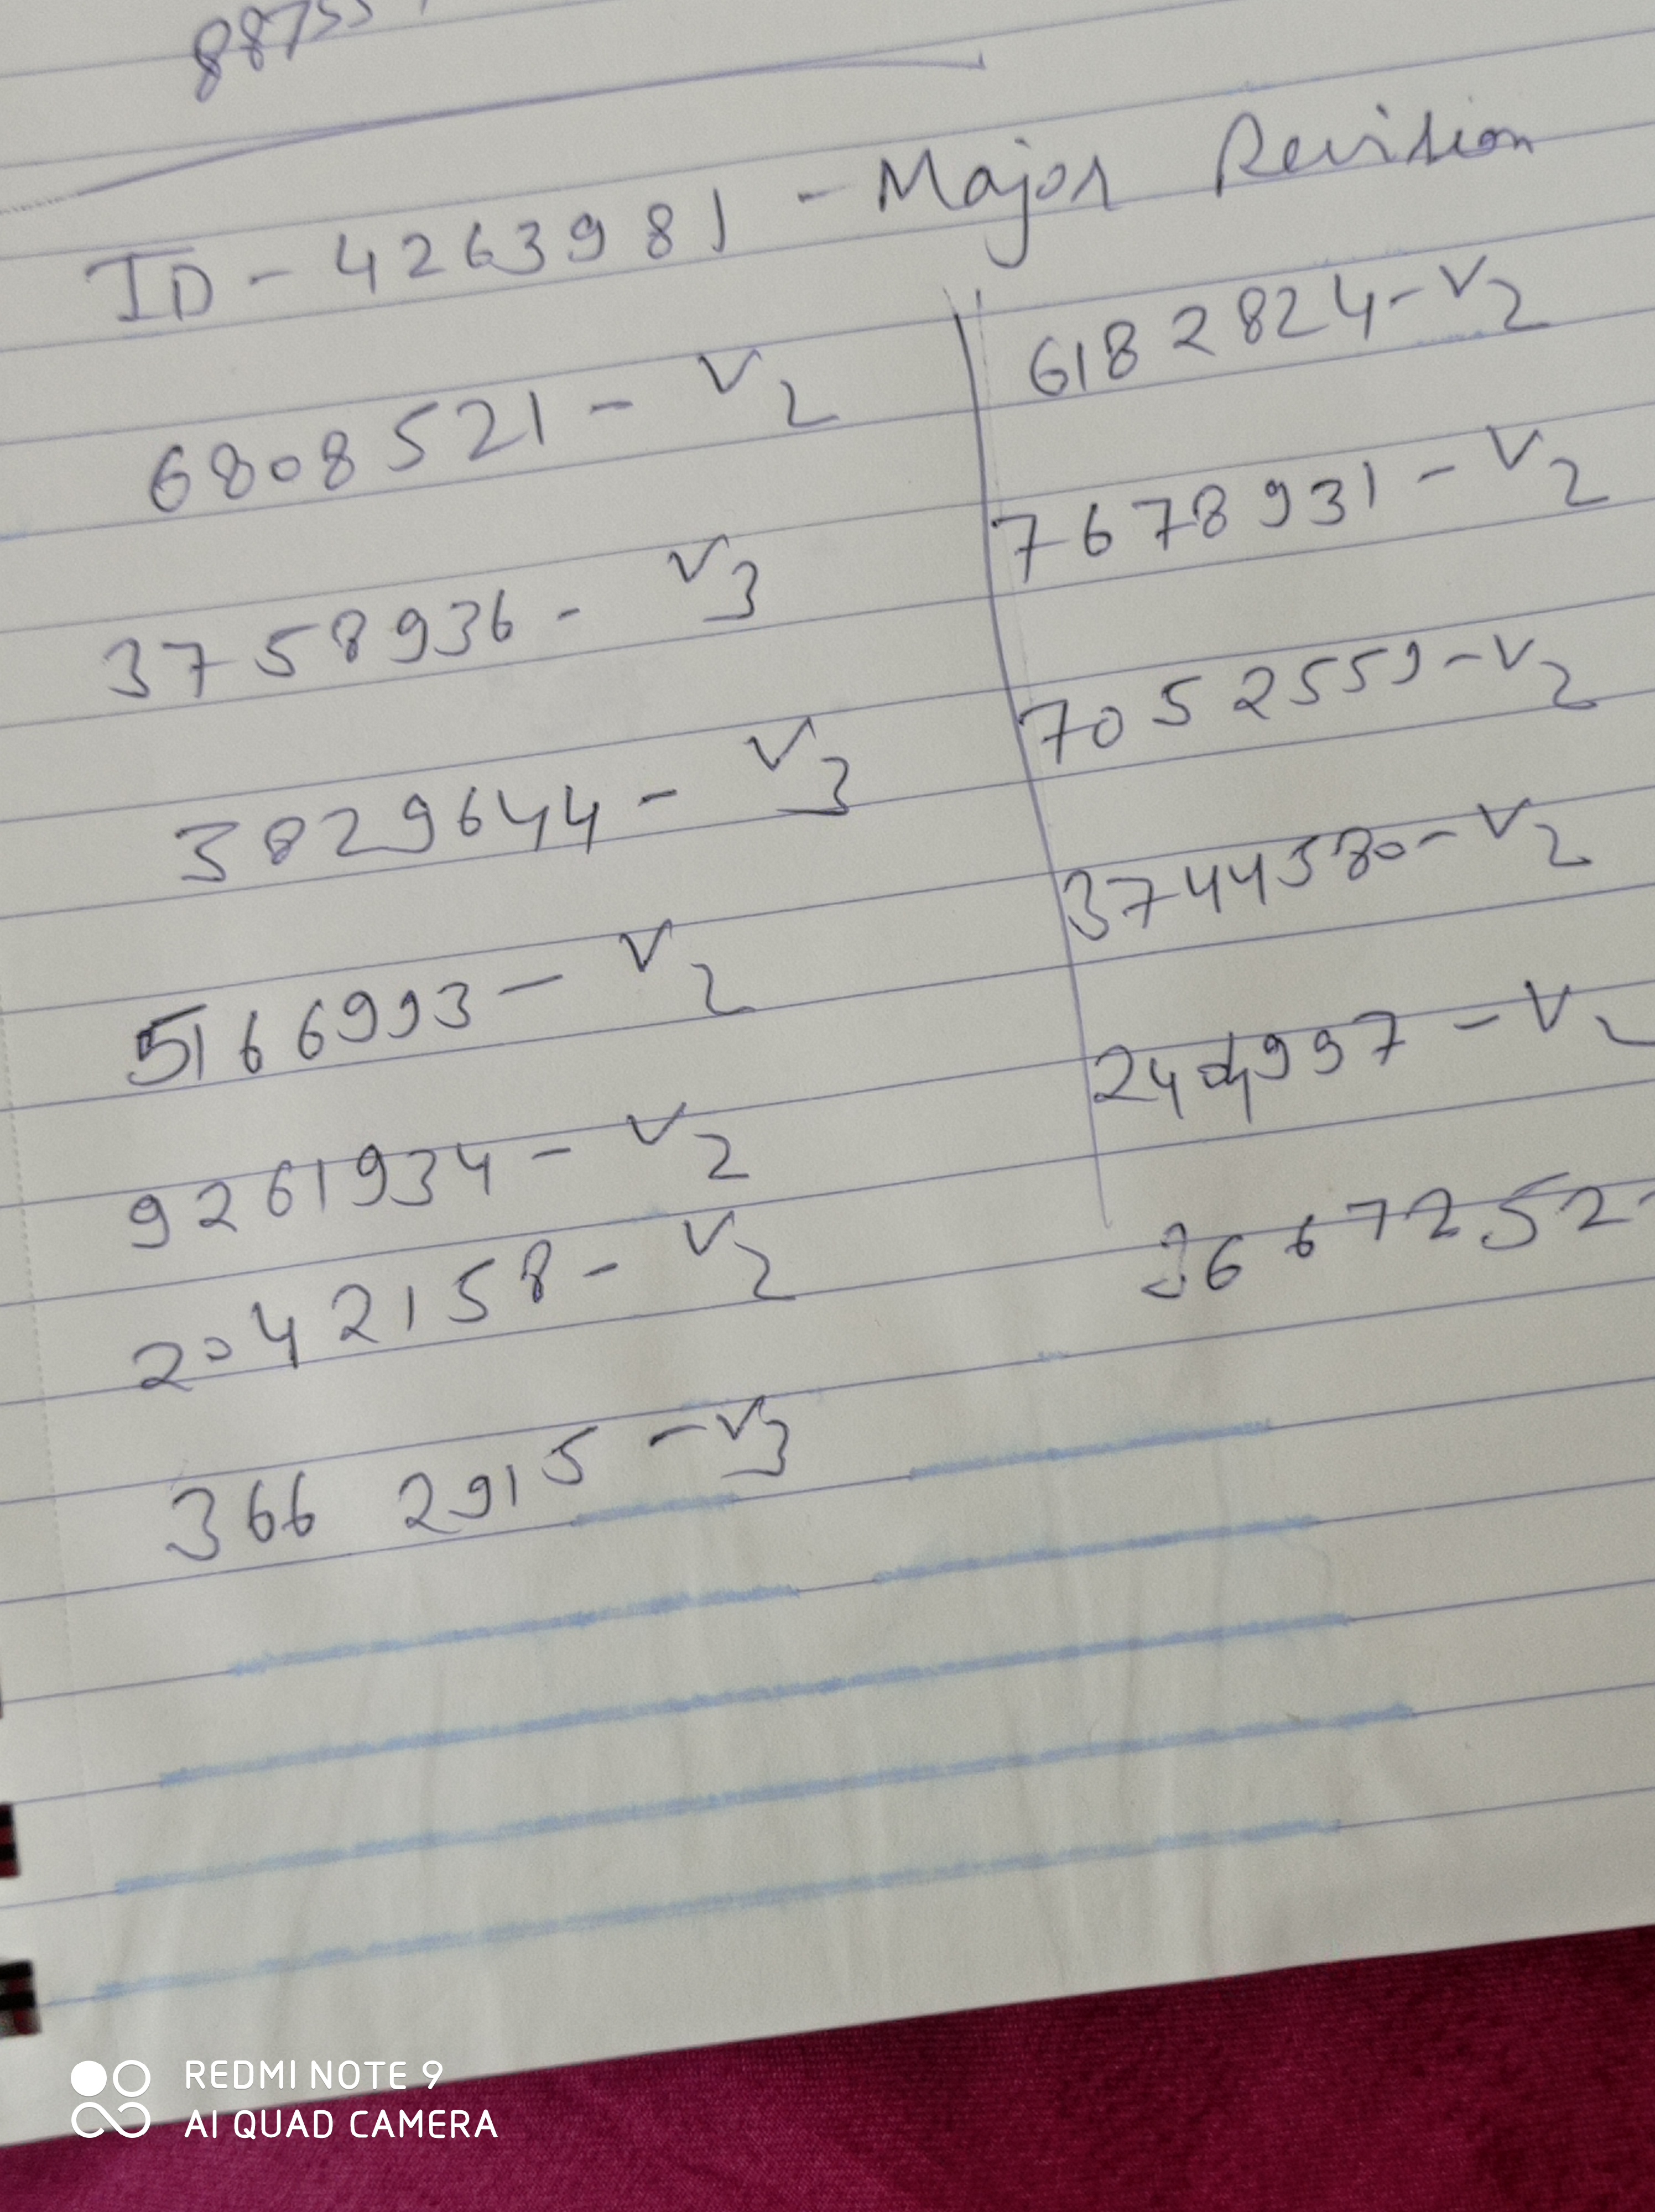 88755
ID - 4263981 - Major Revision
6808521 - V2
3758936 - V3
3829644 - V3
5166993 - V2
9261934 - V2
2042158 - V2
366 2915 - V3
6182824 - V2
7678931 - V2
7052559 - V2
3744580 - V2
2404997 - V2
3667252
REDMI NOTE 9
AI QUAD CAMERA